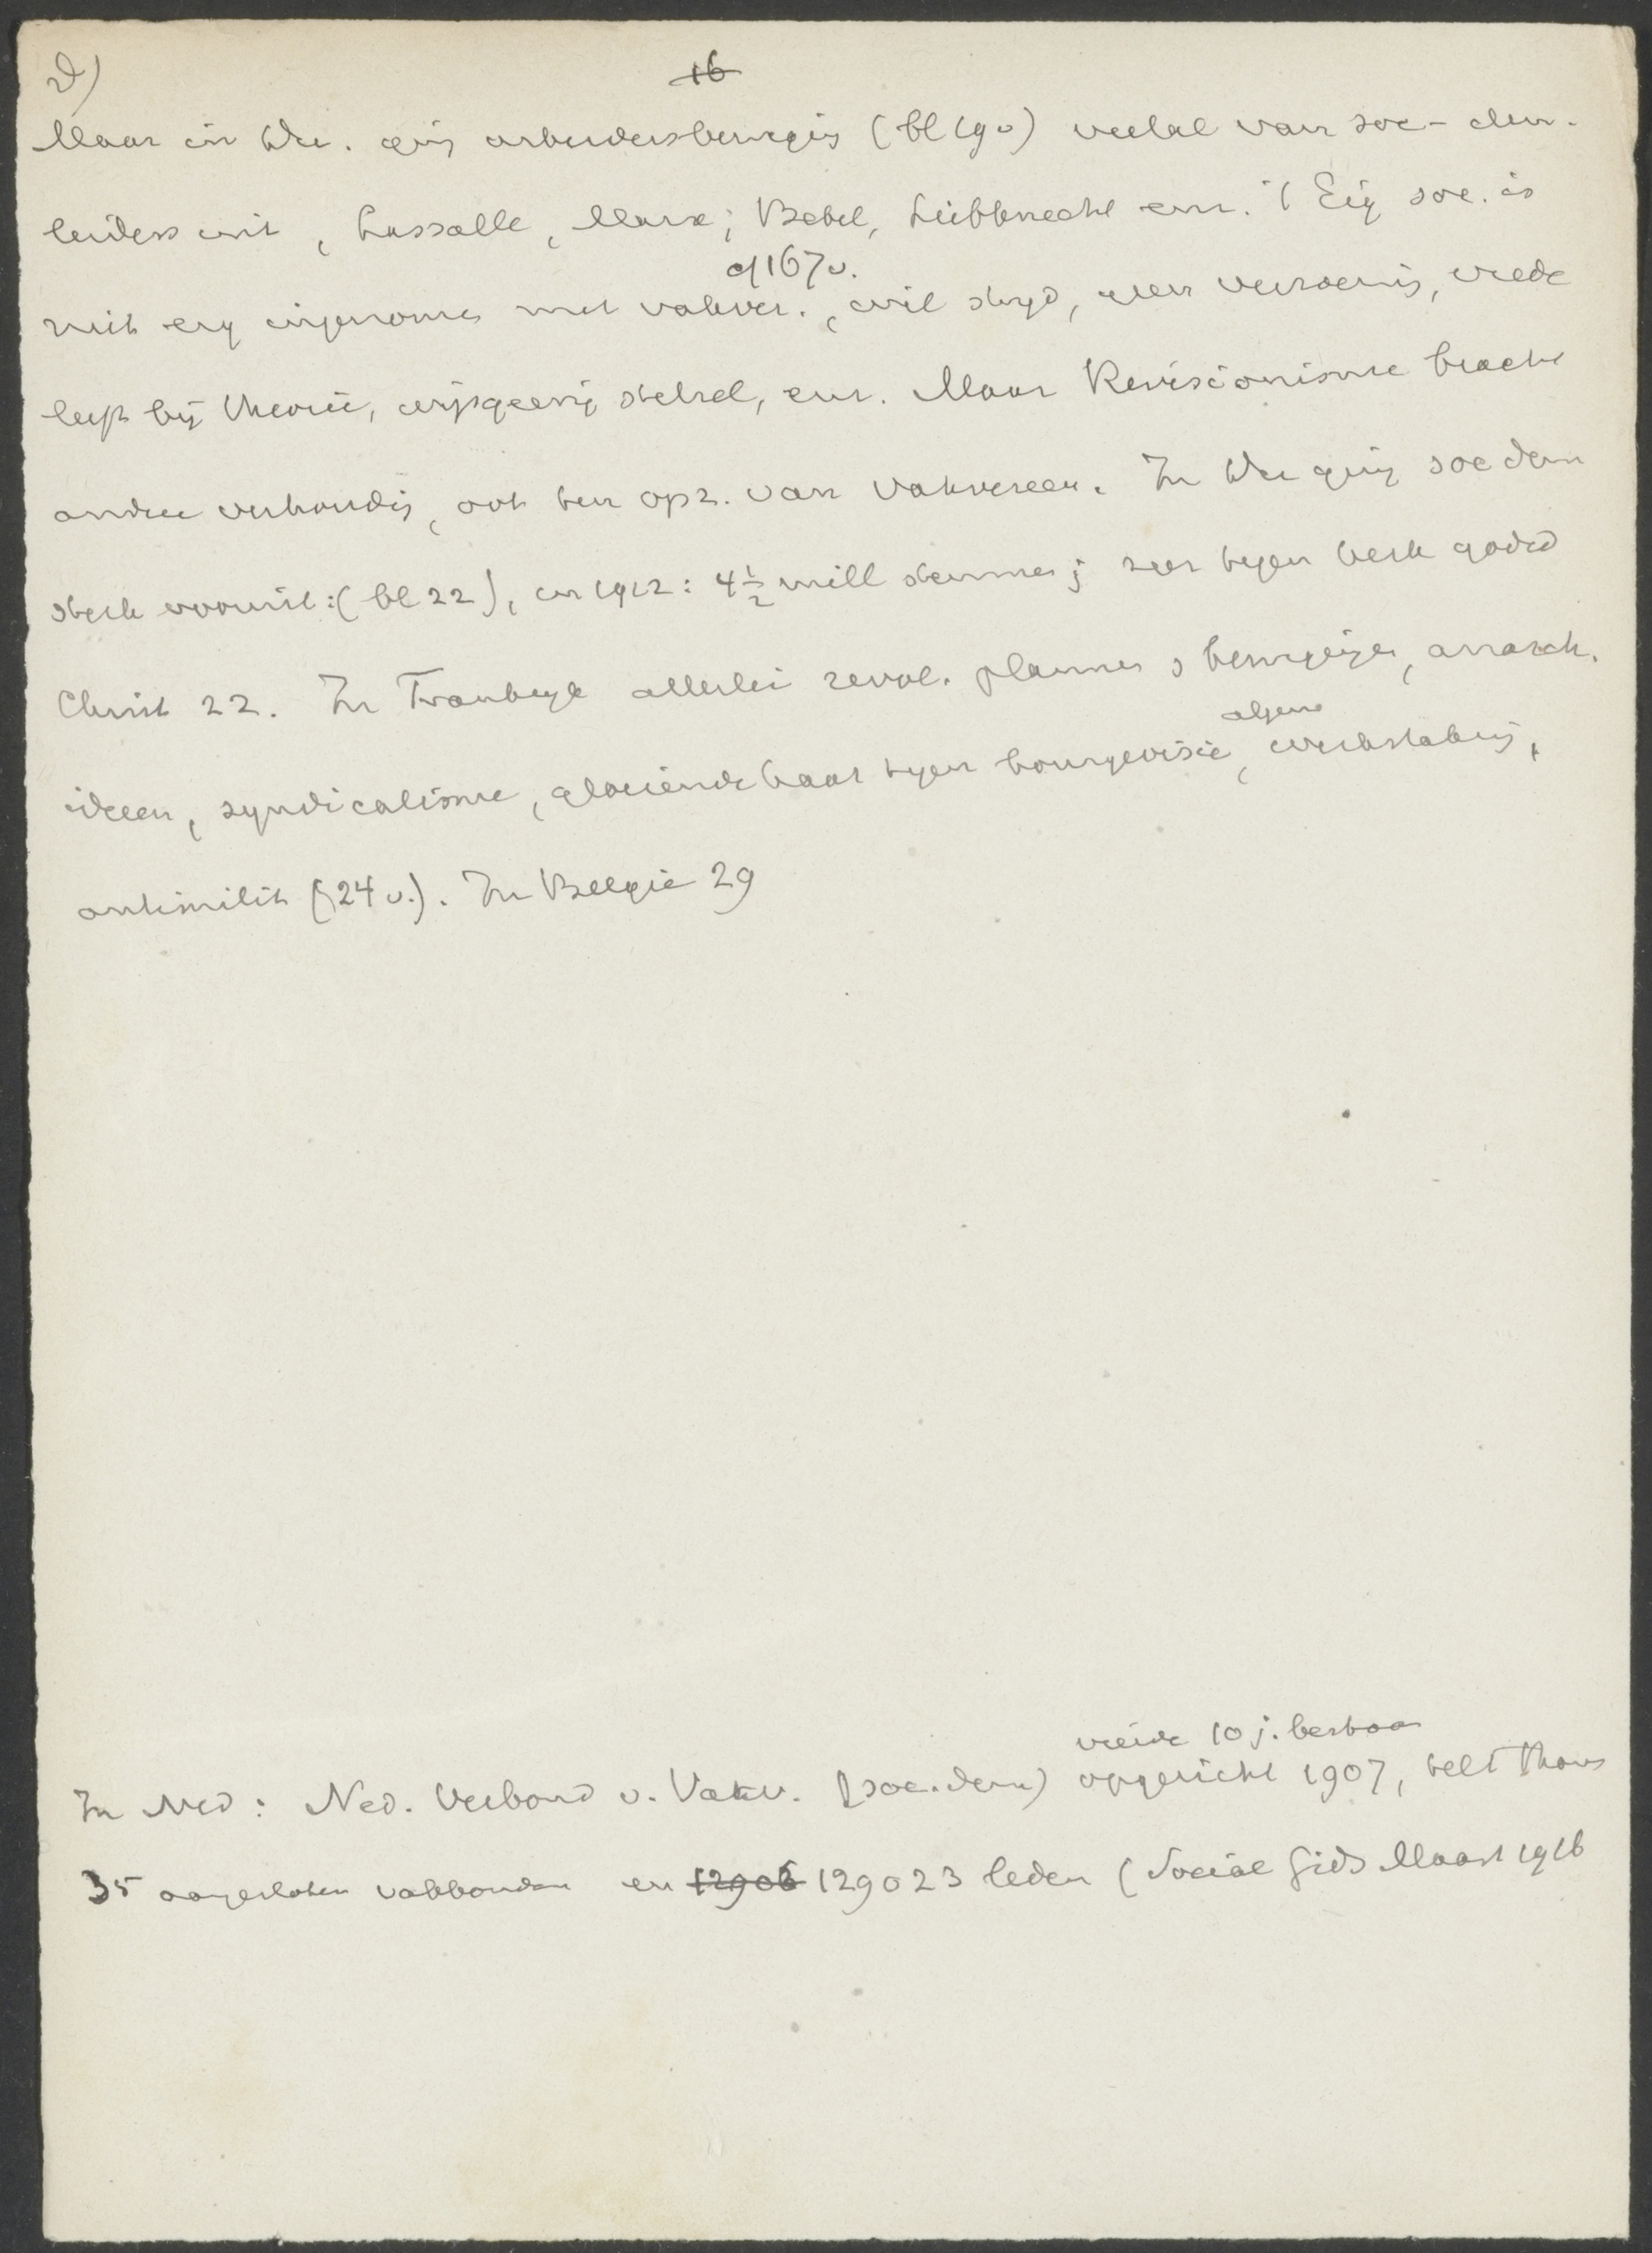 d)
16
Maar in Du. ging arbeidersbeweging (bl 19v) veelal van soc-dem.
leiders uit, Lassalle, Marx; Bebel, Liebknecht enz. Eig soc. is
cf 167v.
niet erg ingenomen met vakver., wil strijd, geen verzoening, vrede
leeft bij theorie, wijsgeerig stelsel, enz. Maar Revisionisme bracht
andere verhouding, ook ten opz. van vakvereen. In Du ging soc dem
sterk vooruit: (bl 22), in 1912: 4 1/2 mill stemmen; zeer tegen kerk godsd
Christ 22. In Frankrijk allerlei revol. plannen & bewegingen, anarch.
algem
ideeen, syndicalisme, gloeiende haat tegen bourgeoisie, werkstaking,
antimilit (24 v.). In Belgie 29
vierde 10 j. bestaan
In Ned: Ned. Verbond v. Vakv. (soc.dem) opgericht 1907, telt thans
35 aangesloten vakbonden en 12906 129023 leden (Social Gids Maart 1916